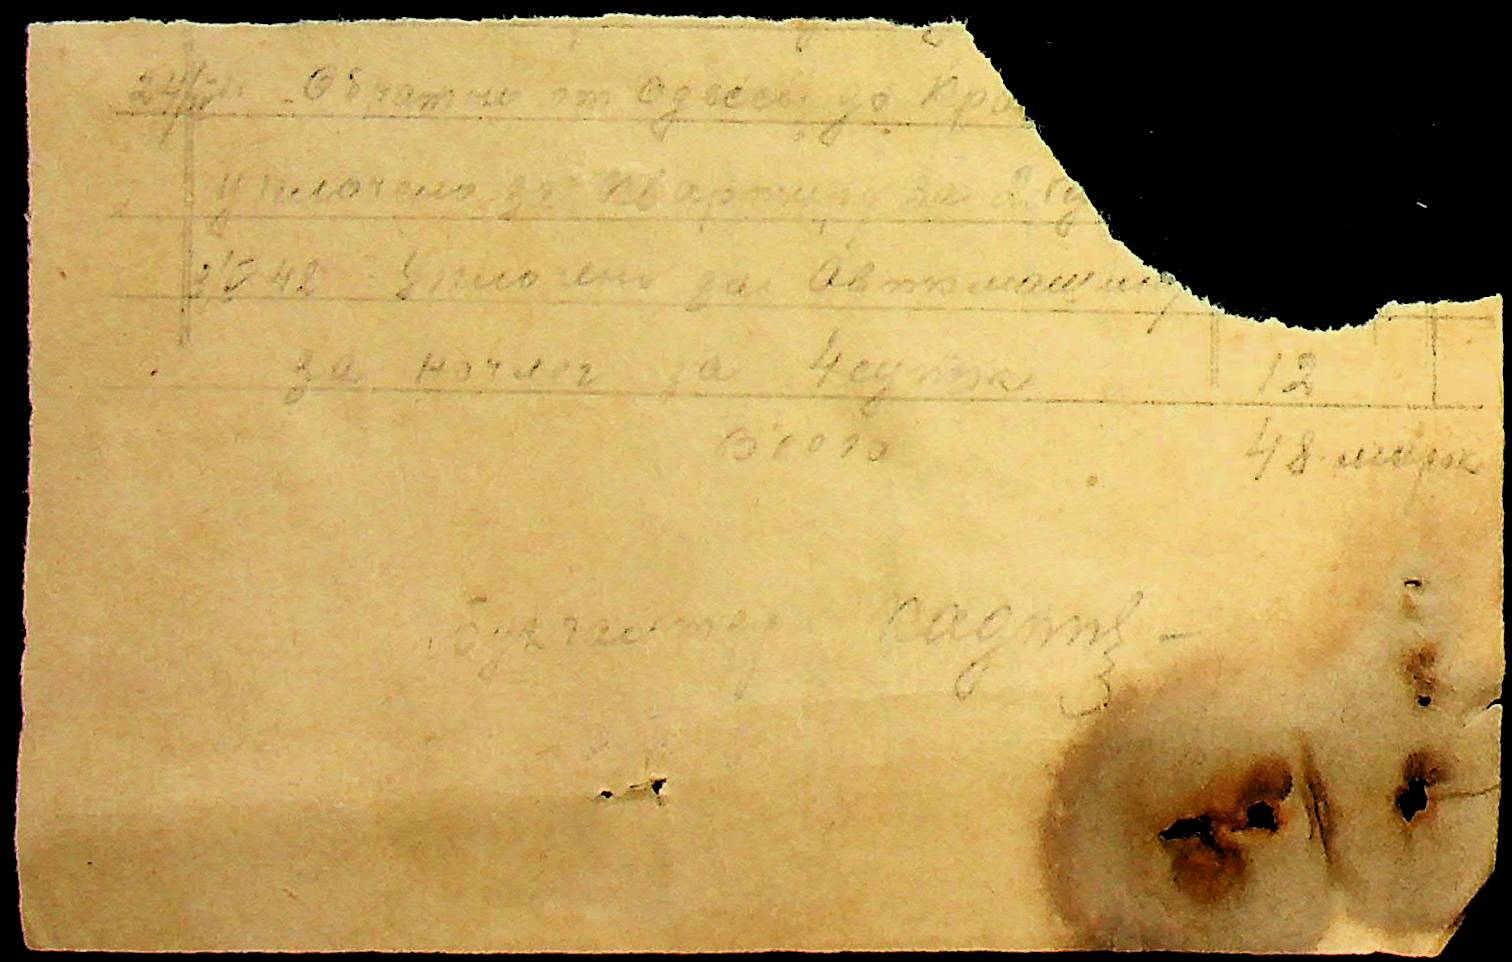 Обратно от Одессы до Кра
Уплочено за квартиру за 2 су
48 Уплочено за Автомашину
за ночлег за 4 суток 12
Всего 48 марк
Бухгалтер